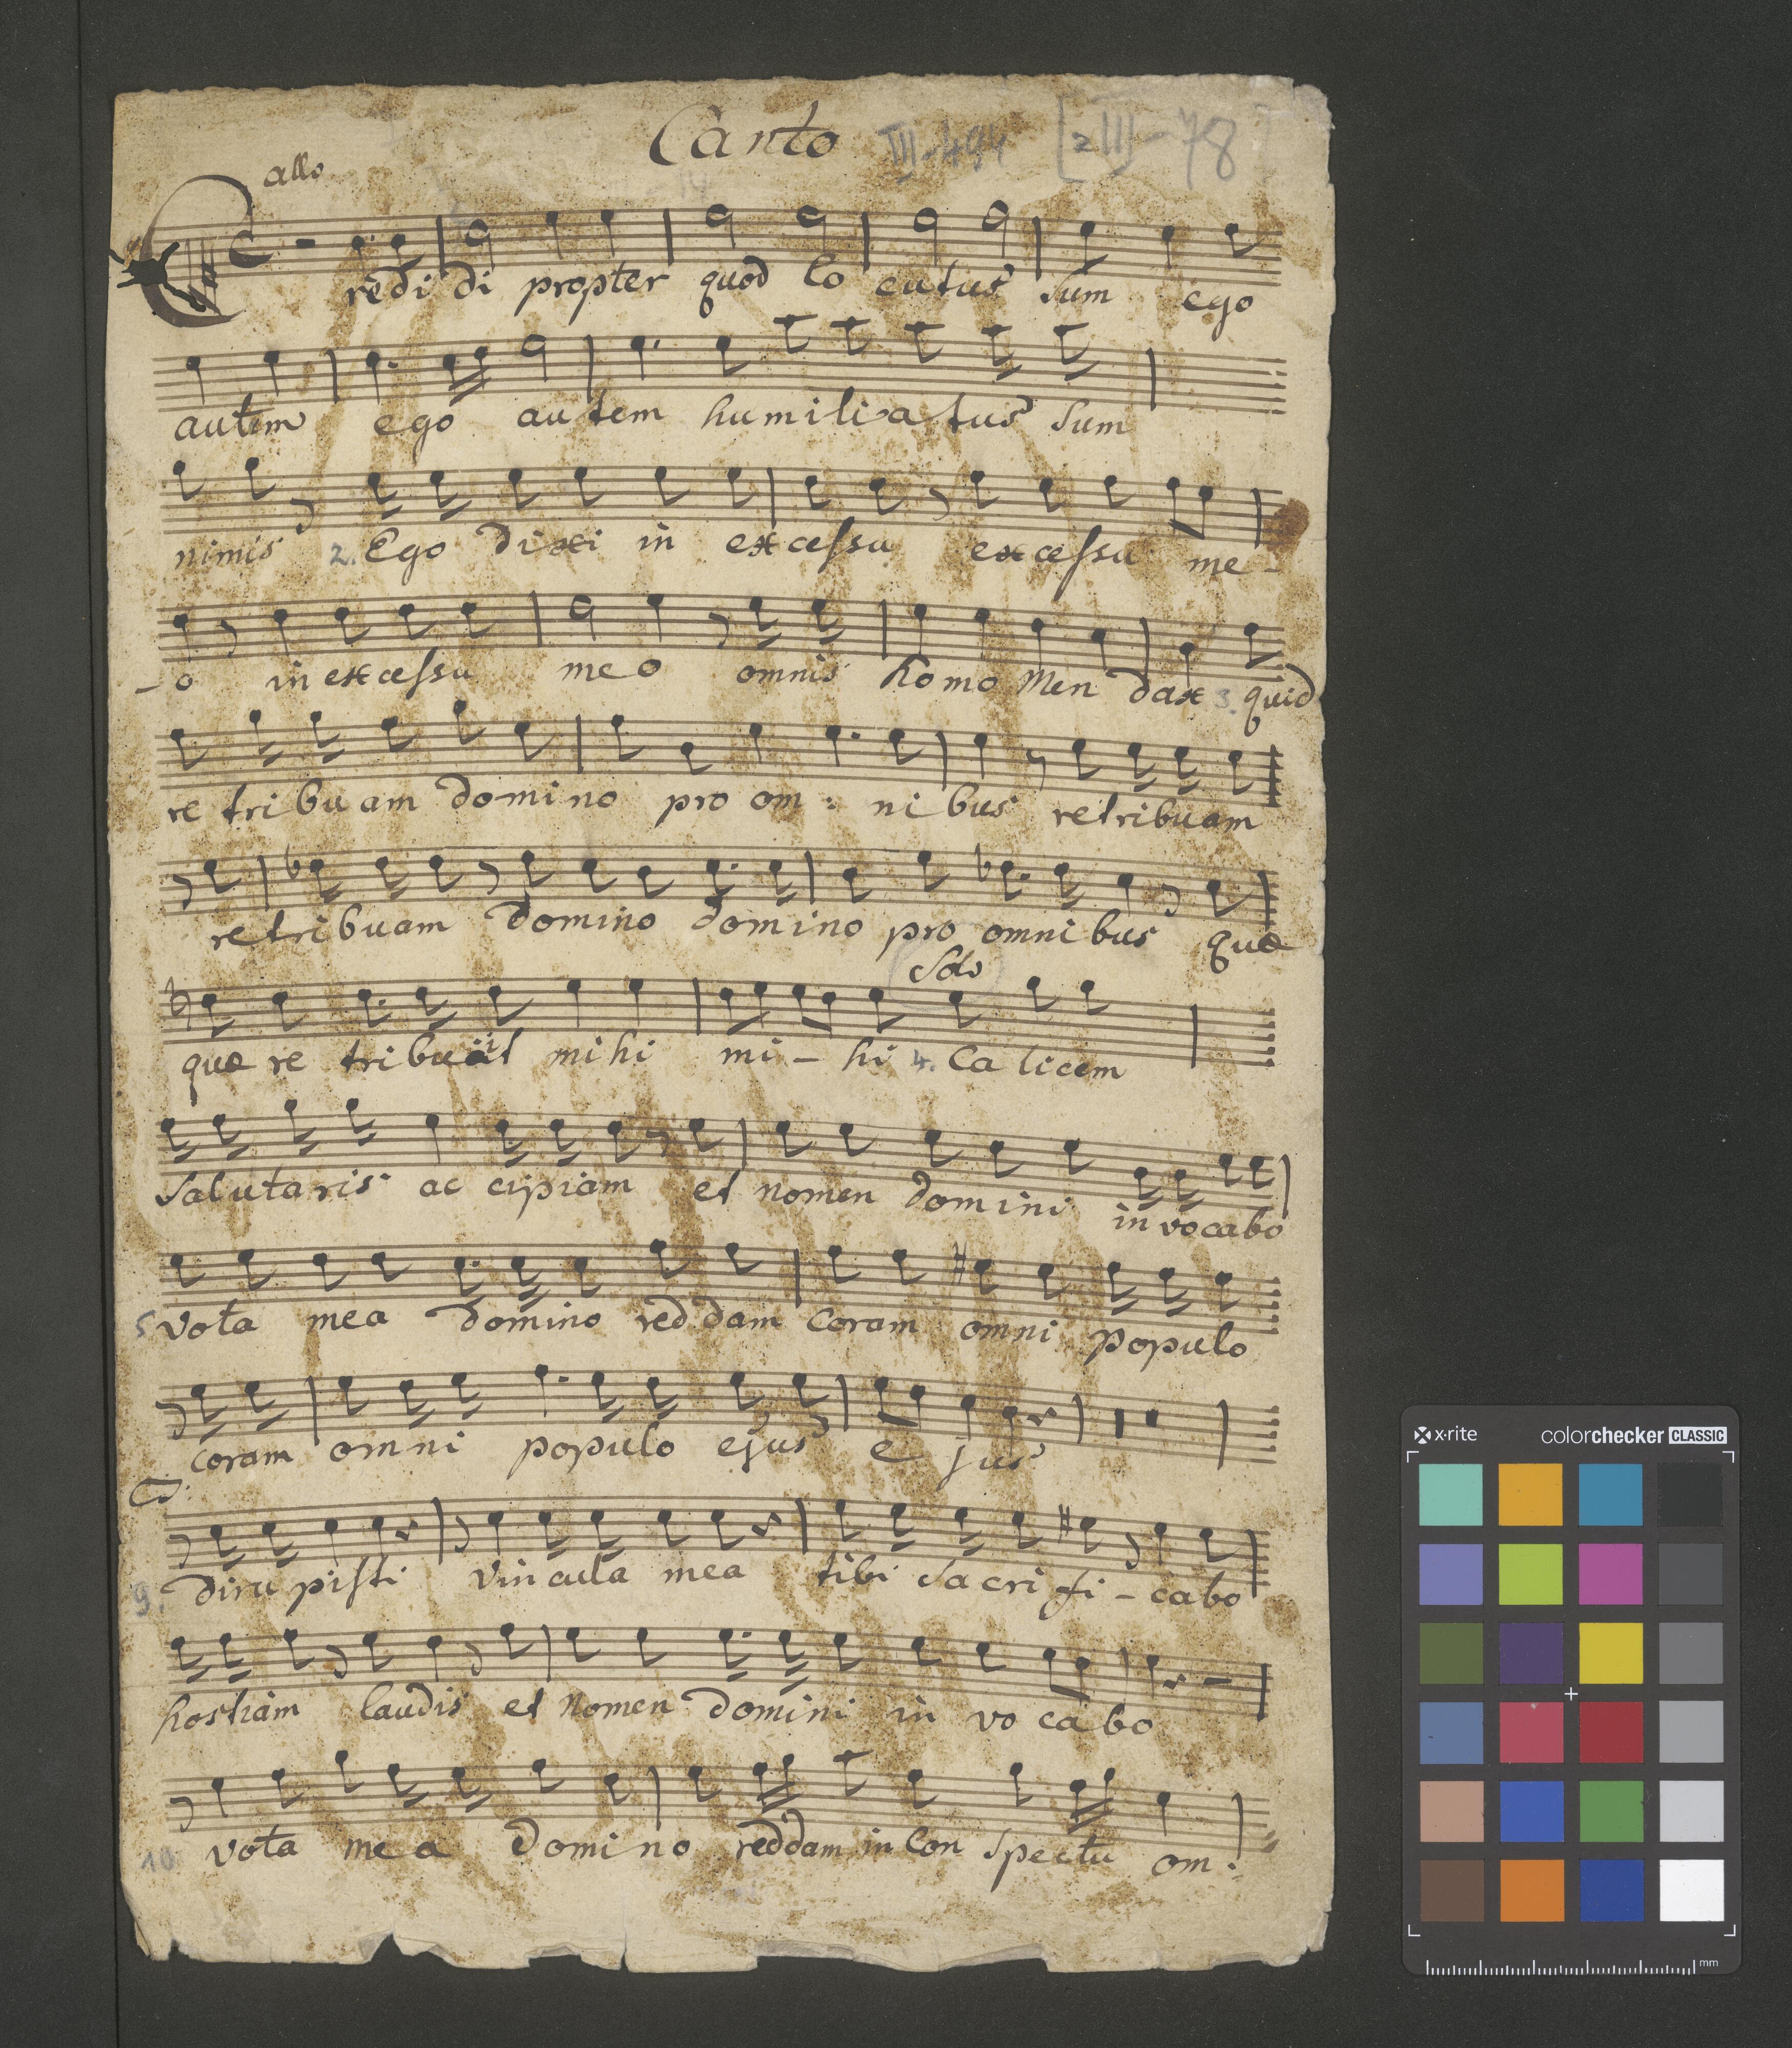 Canto III-494 [2III]-78
allo
Credidi propter quod lo cutus sum ego
autem ego autem humiliatus sum
nimis 2. Ego dixi in excessu excessu me-
-o in excessu meo omnis homo Men dax 3. quid
re tribuam domino pro om: nibus retribuam
retribuam domino domino pro omnibus quæ
Solo
quæ re tribuit mihi mi-hi 4. Calicem
Salutaris accipiam et nomen domini invocabo
5 vota mea domino reddam Coram omni populo
coram omni populo ejus ejus
9. dirupisti vincula mea tibi sacrifi-cabo
hostiam laudis et Nomen domini in vocabo
10 vota mea Domino reddam in Conspectu om:
x-rite colorchecker CLASSIC
mm